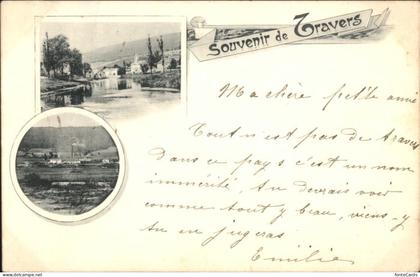 Souvenir de Travers
Ma chère petite amie
Tout n'est pas de travers
Dans ce pays c'est un nom
immérité, tu devrais voir
comme tout y beau, viens-y
tu en jugeras.
Emilie